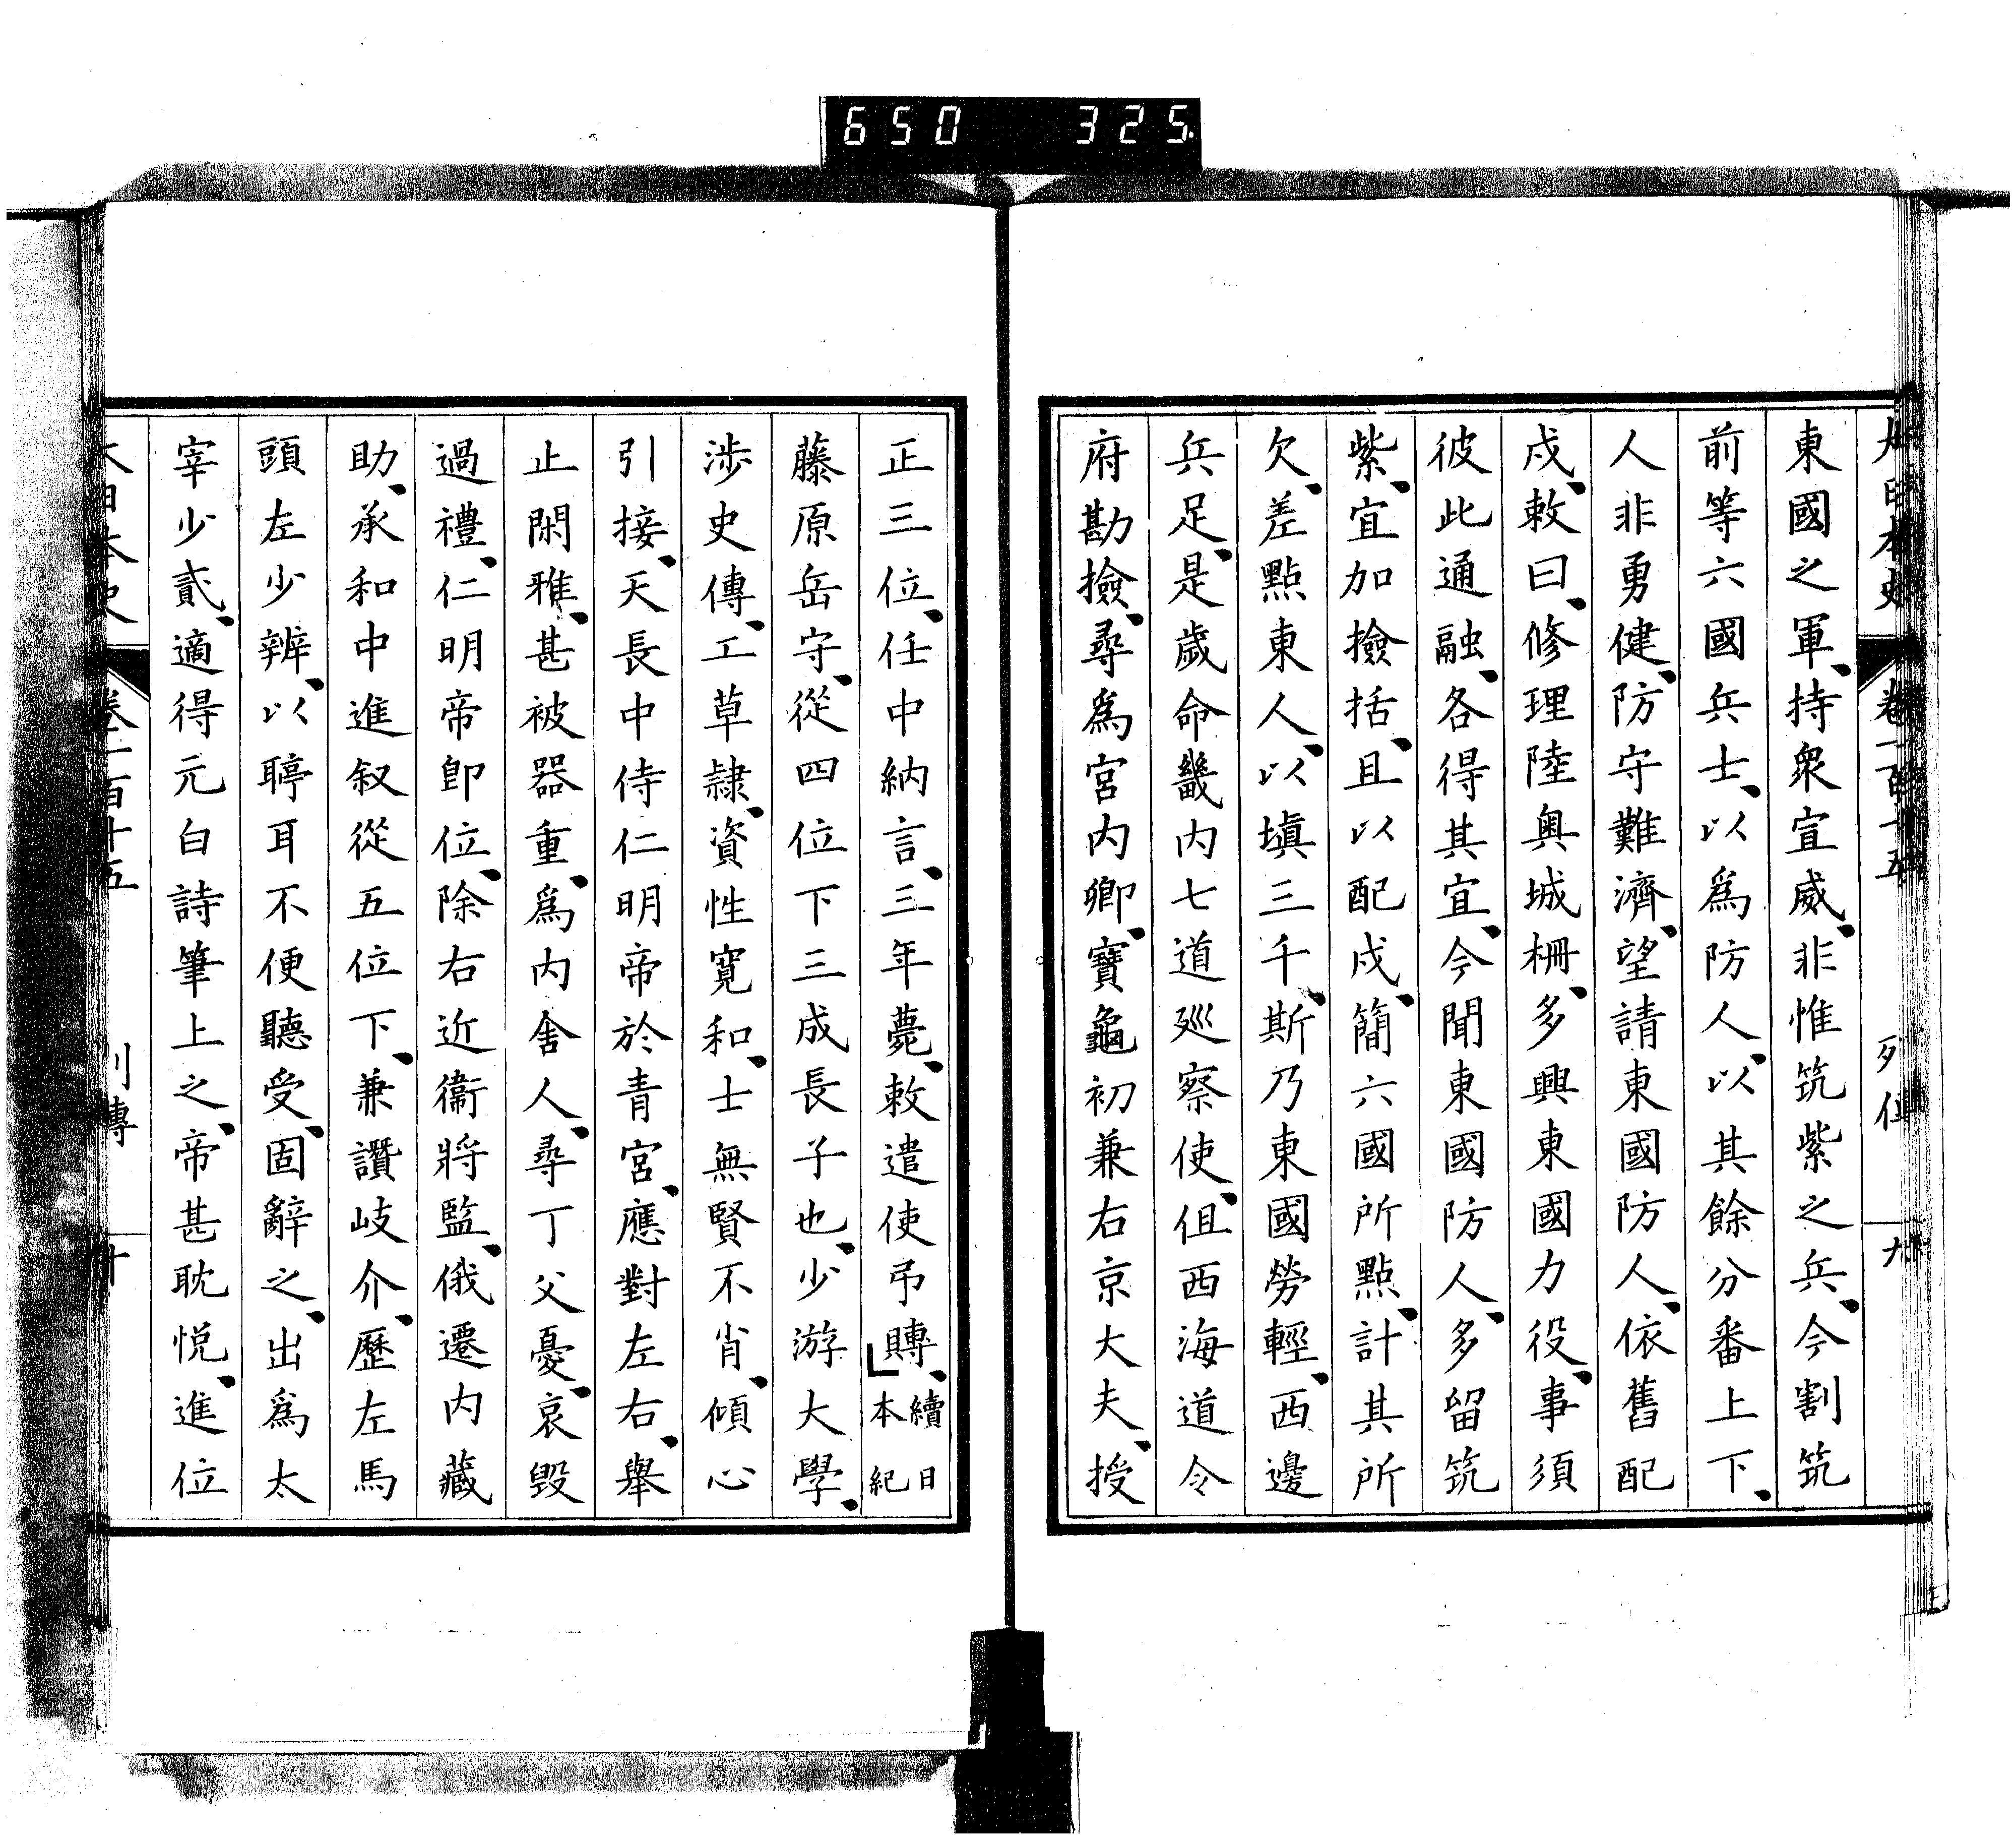 650 325
大日本史 卷一百十五 列傳 九
東國之軍、持衆宣威、非惟筑紫之兵、今割筑
前等六國兵士、以爲防人、以其餘分番上下、
人非勇健、防守難濟、望請東國防人、依舊配
戍、敕曰、修理陸奧城柵、多興東國力役、事須
彼此通融、各得其宜、今聞東國防人、多留筑
紫、宜加撿括、且以配戍、簡六國所點、計其所
欠、差點東人、以塡三千、斯乃東國勞輕、西邊
兵足、是歲命畿內七道巡察使、但西海道令
府勘撿、尋爲宮內卿、寶龜初兼右京大夫、授
正三位、任中納言、三年薨、敕遣使弔賻、續日本紀
藤原岳守、從四位下三成長子也、少游大學、
涉史傳、工草隷、資性寬和、士無賢不肖、傾心
引接、天長中侍仁明帝於青宮、應對左右、擧
止閑雅、甚被器重、爲內舍人、尋丁父憂、哀毀
過禮、仁明帝卽位、除右近衞將監、俄遷內藏
助、承和中進叙從五位下、兼讚岐介、歷左馬
頭左少辨、以聤耳不便聽受、固辭之、出爲太
宰少貳、適得元白詩筆上之、帝甚耽悅、進位
大日本史 卷一百十五 列傳 十